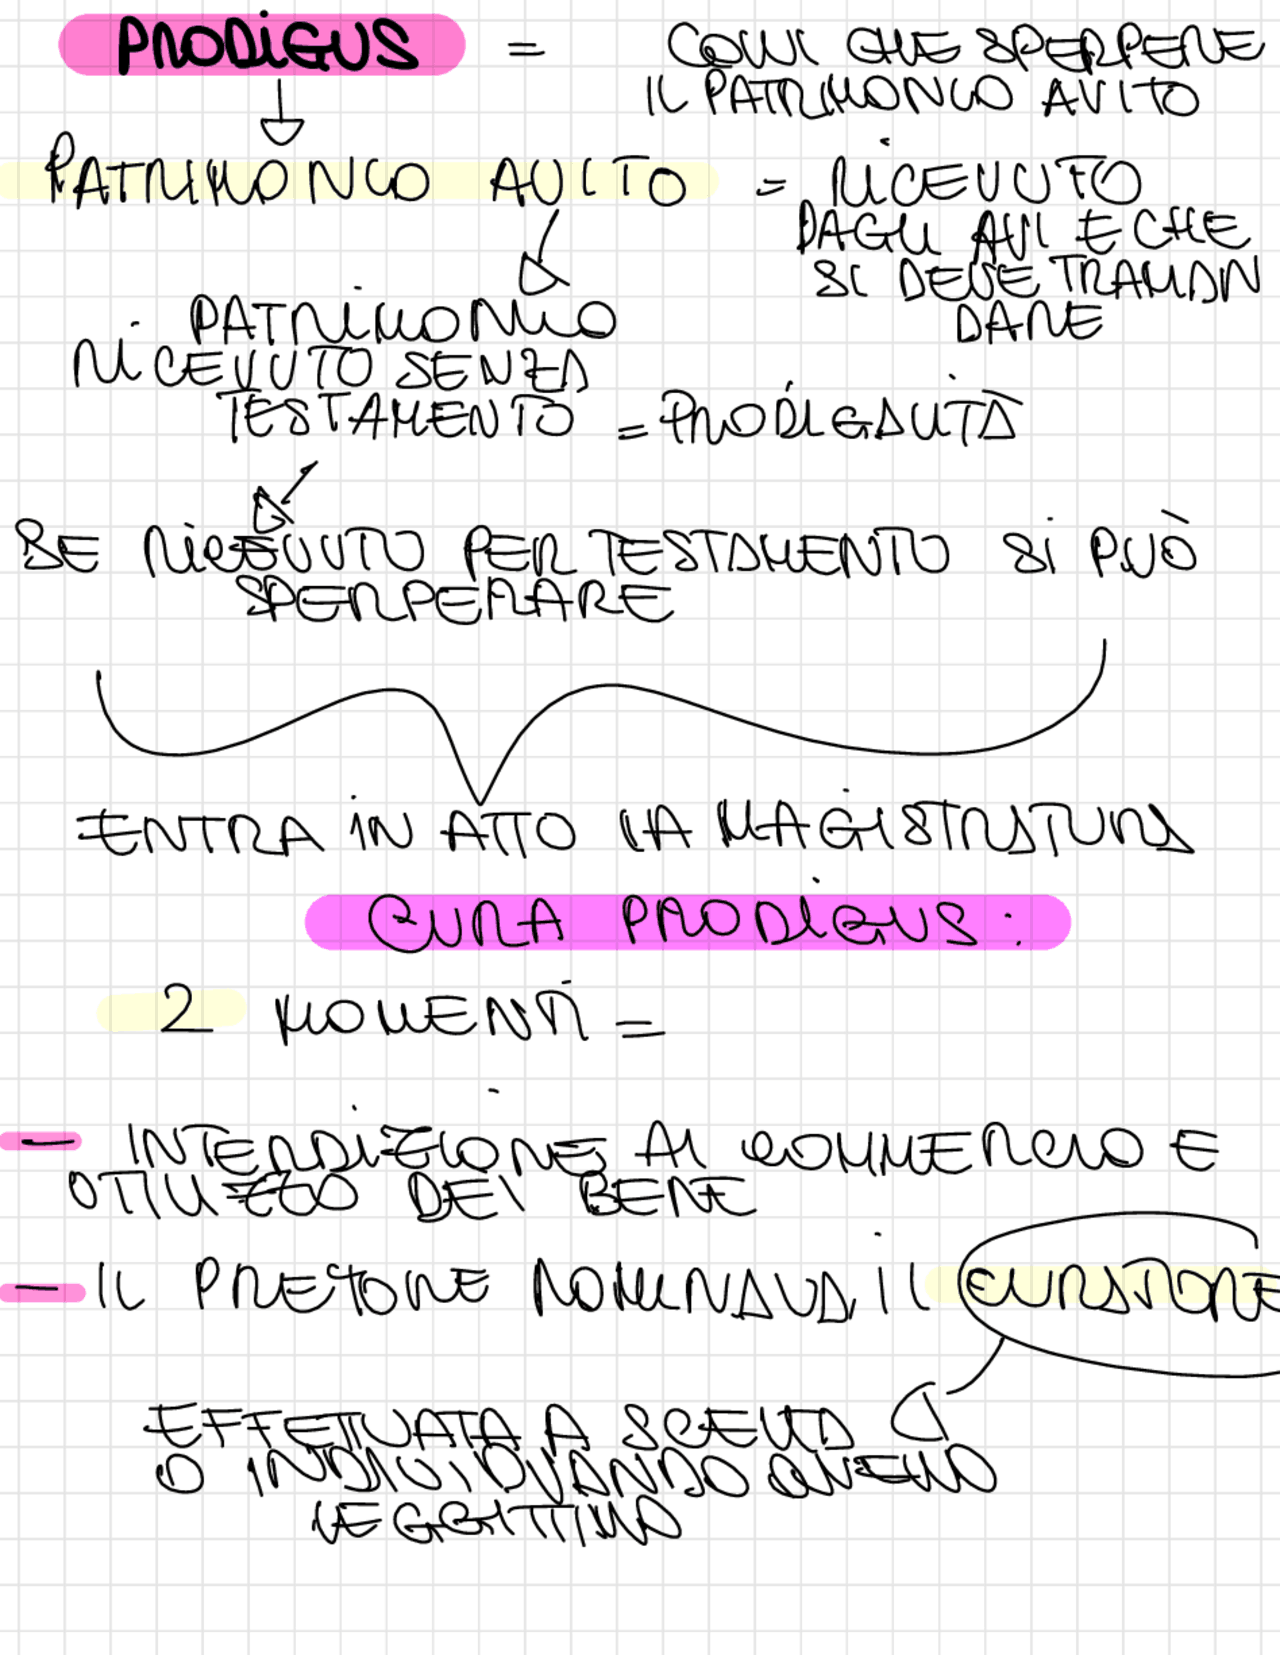 PRODIGUS = COLUI CHE SPERPERE
IL PATRIMONIO AVITO
PATRIMONIO AVITO = RICEVUTO
DAGLI AVI E CHE
SI DEVE TRAMAN
DARE
PATRIMONIO
RICEVUTO SENZA
TESTAMENTO = PRODIGALITÀ
SE RICEVUTO PER TESTAMENTO SI PUÒ
SPERPERARE
ENTRA IN ATTO LA MAGISTRATURA
CURA PRODIGUS:
2 MOMENTI =
- INTERDIZIONE AL COMMERCIO E
UTILIZZO DEI BENE
- IL PRETORE NOMINAVA IL CURATORE
EFFETTUATA A SCELTA
O INDIVIDUANDO QUELLO
LEGGITTIMO